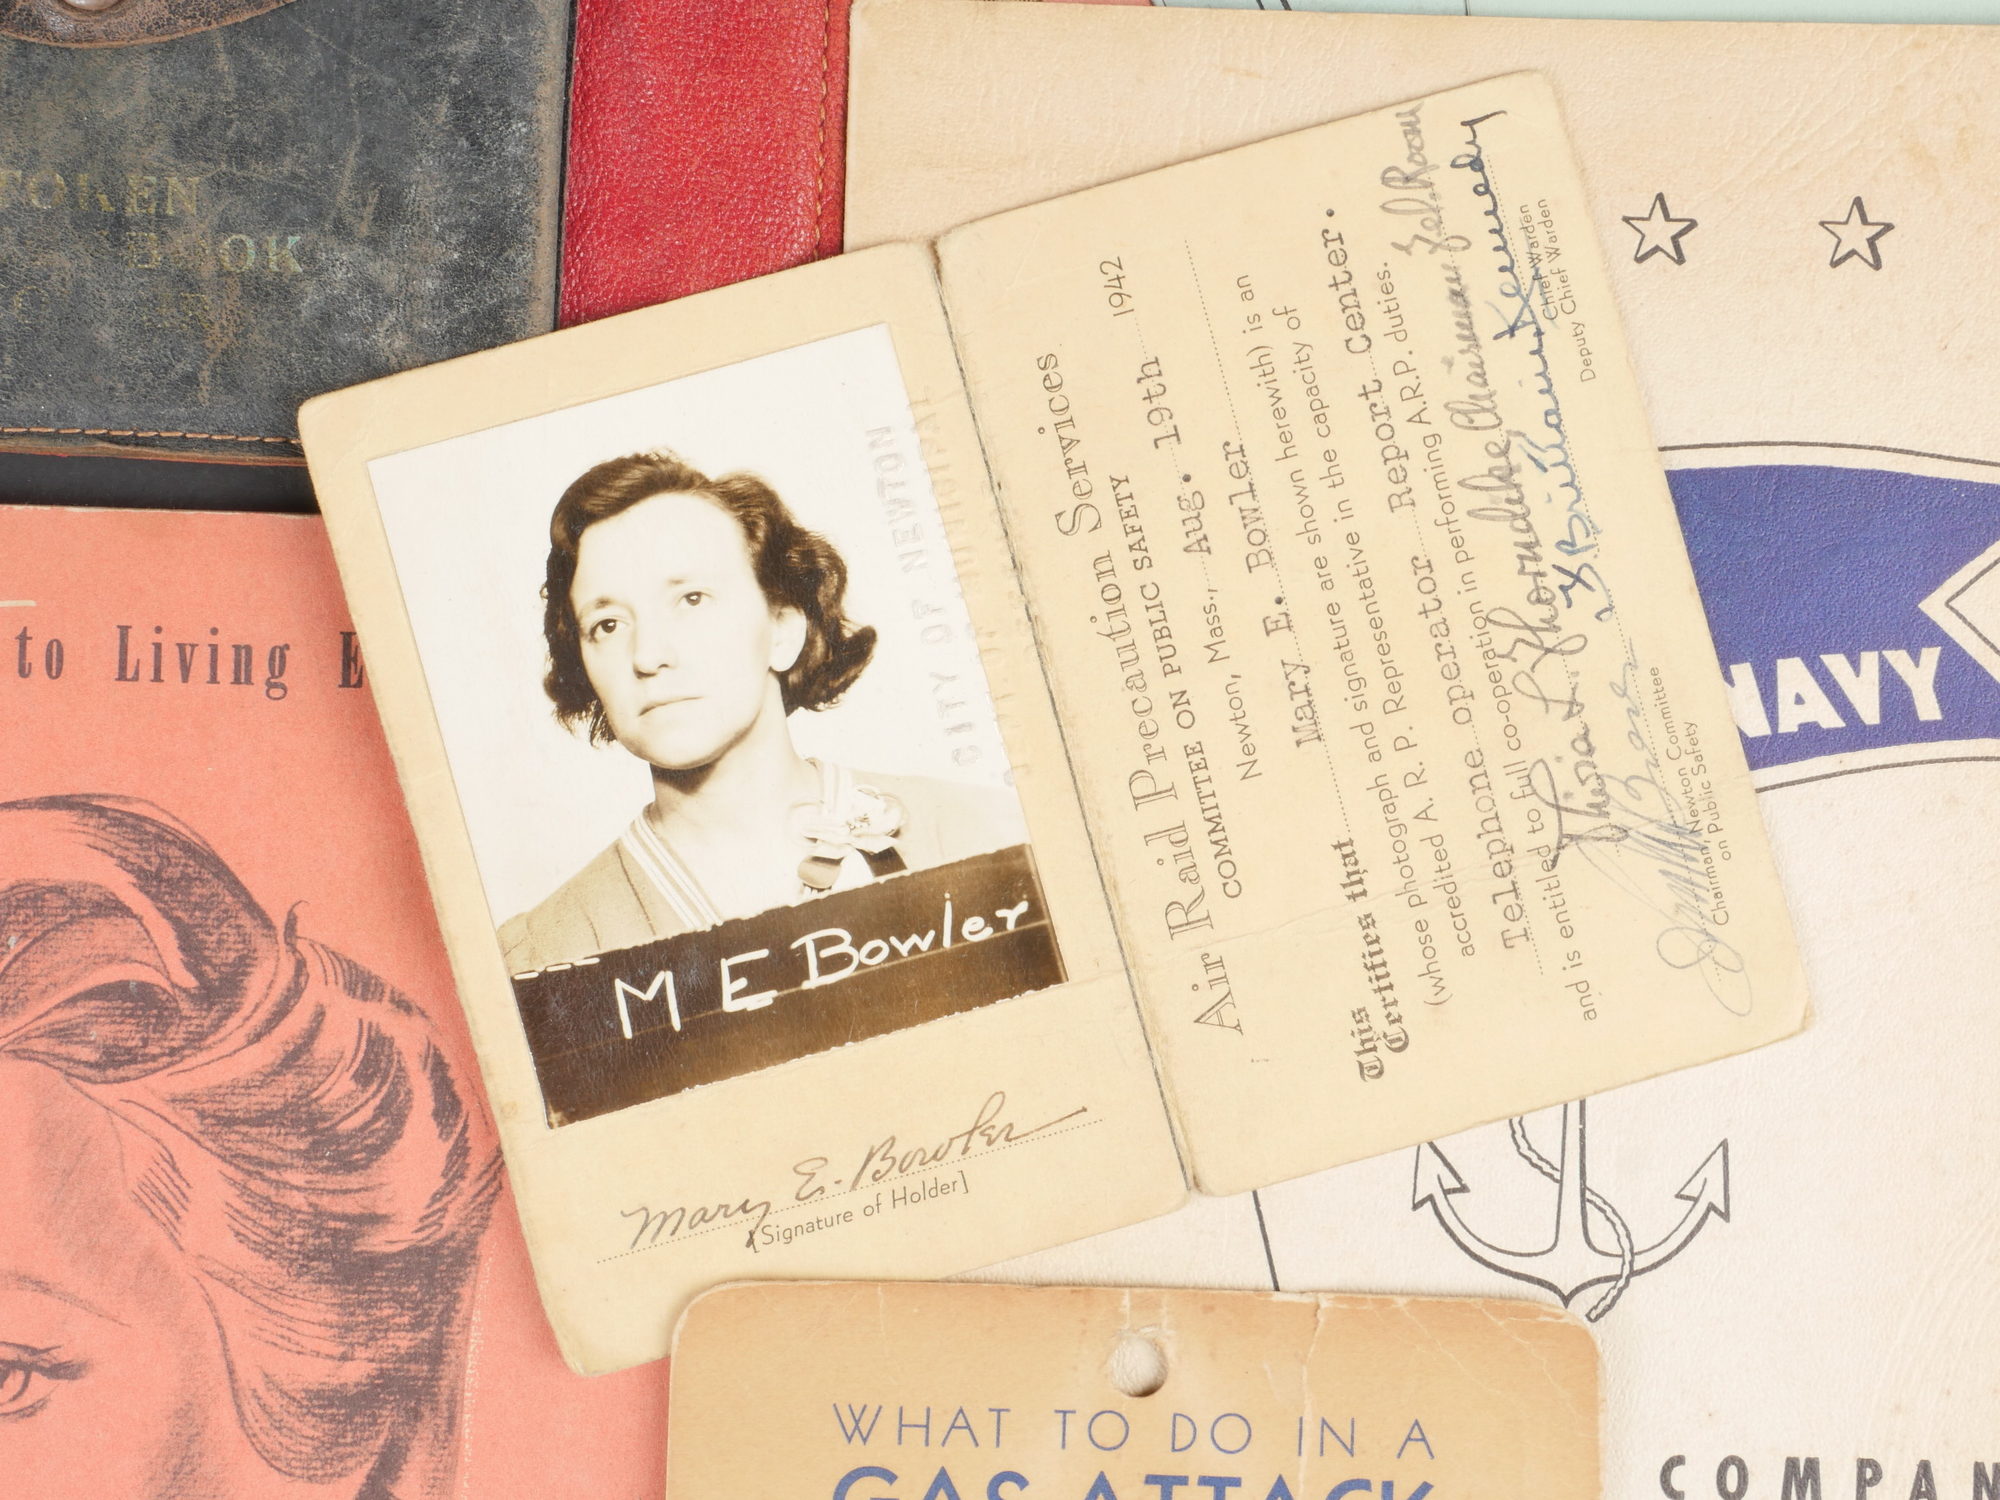 TOKEN
BOOK
to Living E
CITY OF NEWTON
M E Bowler
Mary E. Bowler
[Signature of Holder]
Air Raid Precaution Services
COMMITTEE ON PUBLIC SAFETY
Newton, Mass., Aug. 19th 1942
This Certifies that Mary E. Bowler
(whose photograph and signature are shown herewith) is an
accredited A. R. P. Representative in the capacity of
Telephone operator Report Center.
and is entitled to full co-operation in performing A.R.P. duties.
L. Thorndike Chairman Tel. Room
Brittain Kennedy
Chairman, Newton Committee
on Public Safety
Chief Warden
Deputy Chief Warden
NAVY
WHAT TO DO IN A
GAS ATTACK
COMPAN